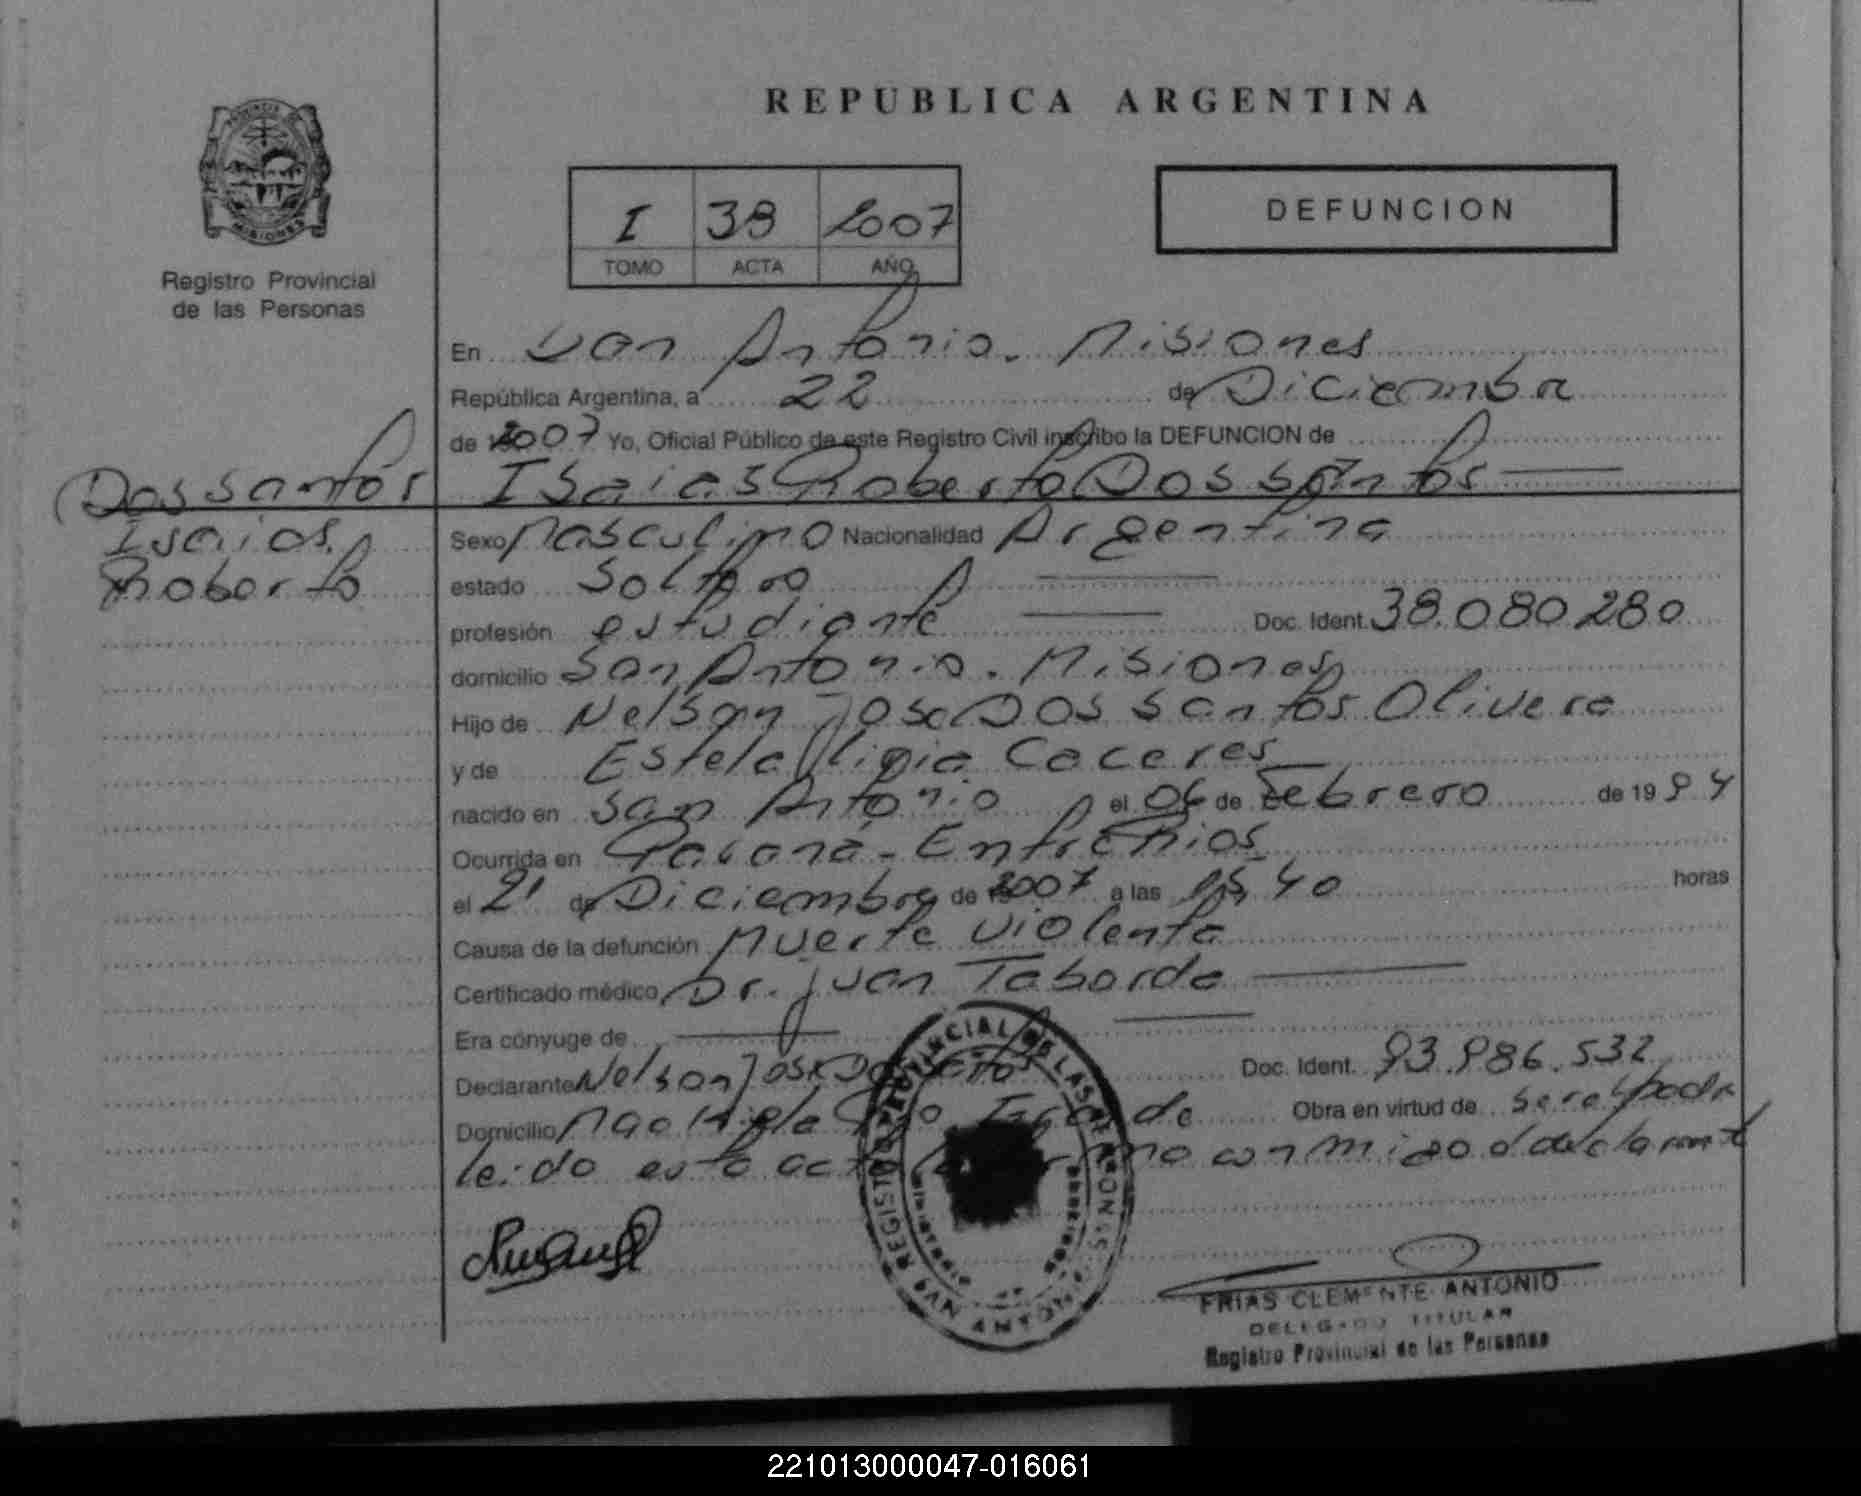 REPUBLICA ARGENTINA
PROVINCIA DE
MISIONES
Registro Provincial
de las Personas
I 38 2007
TOMO ACTA AÑO
DEFUNCION
En San Antonio. Misiones
República Argentina, a 22 de Diciembre
de 2007 Yo, Oficial Público de este Registro Civil inscribo la DEFUNCION de
Isaias Roberto Dos santos
Dos santos
Isaias
Roberto
Sexo Masculino Nacionalidad Argentina
estado Soltero
profesión estudiante Doc. Ident. 38.080.280
domicilio San Antonio. Misiones
Hijo de Nelson Jose Dos santos Olivera
y de Estela ligia Caceres
nacido en San Antonio el 06 de Febrero de 1994
Ocurrida en Paraná - Entre Rios
el 21 de Diciembre de 2007 a las 15,40 horas
Causa de la defunción Muerte violenta
Certificado médico Dr. Juan Taborda
Era cónyuge de
Declarante Nelson Jose Dos santos Doc. Ident. 93.986.532
Domicilio Obra en virtud de ser el padre
leido esta acta la firmo conmigo el declarante
REGISTRO PROVINCIAL DE LAS PERSONAS
SAN ANTONIO
FRIAS CLEMENTE ANTONIO
DELEGADO TITULAR
Registro Provincial de las Personas
221013000047-016061